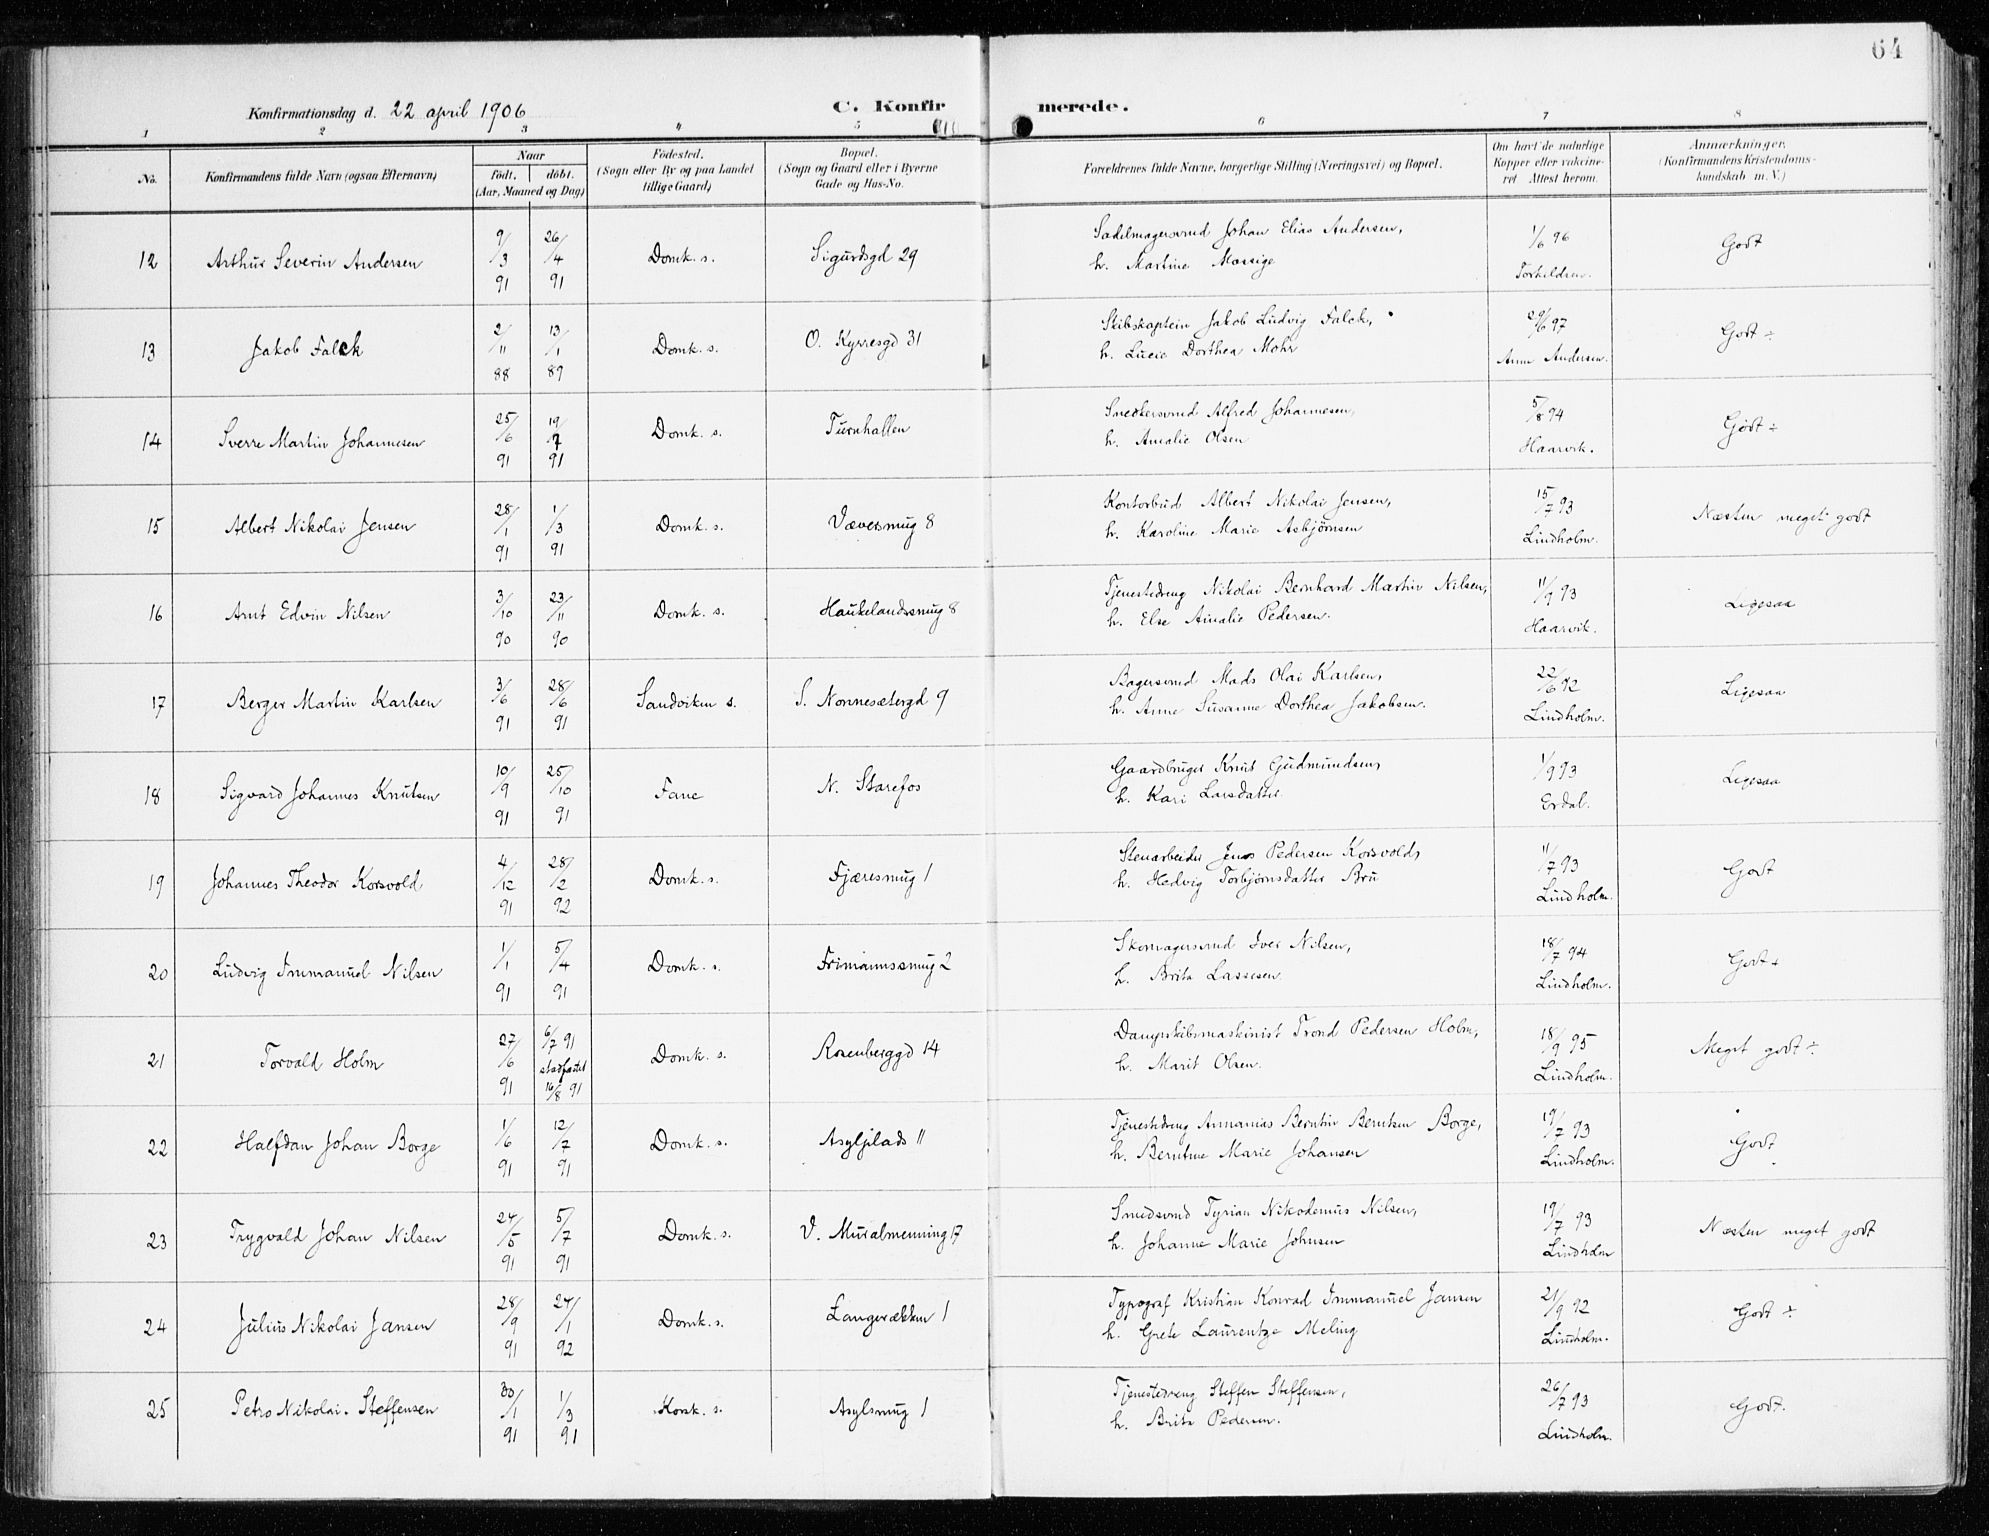 64
Konfirmationsdag d. 22 april 1906
C. Konfir merede.
1 2 3 4 5 6 7 8
No. Konfirmandens fulde Navn (ogsaa Efternavn) Naar født, døbt. (Aar, Maaned og Dag) Fødested. (Sogn eller By og paa Landet tillige Gaard) Bopæl. (Sogn og Gaard eller i Byerne Gade og Hus-No. Forældrenes fulde Navne, borgerlige Stilling (Næringsvei) og Bopæl. Om havt de naturlige Kopper eller vaccineret Attest herom. Anmærkninger. (Konfirmandens Kristendomskundskab m. V.)
12 Arthur Severin Andersen 9/3 91 26/4 91 Domk. s. Sigurdsgd 29 Sadelmagersvend Johan Elias Andersen, h. Martine Mossige 1/6 96 Torkildsen. Godt
13 Jakob Falck 2/11 88 13/1 89 Domk. s. O. Kyrresgd 31 Skibskaptein Jakob Ludvig Falck, h. Lucie Dorthea Mohr 29/6 97 Anna Andersen. Godt ÷
14 Sverre Martin Johannesen 25/6 91 19/7 91 Domk. s. Turnhallen Snedkersvend Alfred Johannesen, h. Amalie Olsen 5/8 94 Haarvik. Godt ÷
15 Albert Nikolai Jensen 28/1 91 1/3 91 Domk. s. Væversmug 8 Kontorbud Albert Nikolai Jensen, h. Karoline Marie Asbjørnsen 15/7 93 Lindholm. Næsten meget godt
16 Arnt Edvin Nilsen 3/10 90 23/11 90 Domk. s. Haukelandssmug 8 Tjenestedreng Nikolai Bernhard Martin Nilsen, h. Else Amalie Pedersen. 11/9 93 Haarvik. Ligesaa
17 Berger Martin Karlsen 3/6 91 28/6 91 Sandviken s. S. Nonnesætergd 9 Bagersvend Mads Olai Karlsen, h. Anne Susanne Dorthea Jakobsen. 22/6 92 Lindholm. Ligesaa
18 Sigvard Johannes Knutsen 10/9 91 25/10 91 Fane N. Starefos Gaardbruger Knut Gudmundsen, h. Kari Larsdatter 1/9 93 Erdal. Ligesaa
19 Johannes Theodor Korsvold 4/12 91 28/2 92 Domk. s. Fjæresmug 1 Stenarbeider Jens Pedersen Korsvold, h. Hedvig Torbjørnsdatter Bru 11/7 93 Lindholm. Godt
20 Ludvig Immanuel Nilsen 1/1 91 5/4 91 Domk. s. Frimannssmug 2 Skomagersvend Iver Nilsen, h. Brita Lassesen 18/7 94 Lindholm. Godt +
21 Torvald Holm 27/6 91 6/7 91 stadfæstet 16/8 91 Domk. s. Rosenberggd 14 Dampskibsmaskinist Trond Pedersen Holm, h. Marit Olsen. 18/9 95 Lindholm. Meget godt ÷
22 Halfdan Johan Borge 1/6 91 12/7 91 Domk. s. Asylplads 11 Tjenestedreng Annanias Berntin Berntsen Borge, h. Berntine Marie Johansen 19/7 93 Lindholm. Godt
23 Trygvald Johan Nilsen 24/5 91 5/7 91 Domk. s. V. Muralmenning 17 Smedsvend Tyrian Nikodemus Nilsen, h. Johanne Marie Johnsen 19/7 93 Lindholm Næsten meget godt
24 Julius Nikolai Jansen 28/9 91 24/1 92 Domk. s. Langerækken 1 Typograf Kristian Konrad Immanuel Jansen h. Grete Laurentze Meling 21/9 92 Lindholm. Godt ÷
25 Petro Nikolai Steffensen 30/1 91 1/3 91 Korsk. s. Asylsmug 1 Tjenestedreng Steffen Steffensen, h. Brita Pedersen. 26/7 93 Lindholm. Godt.